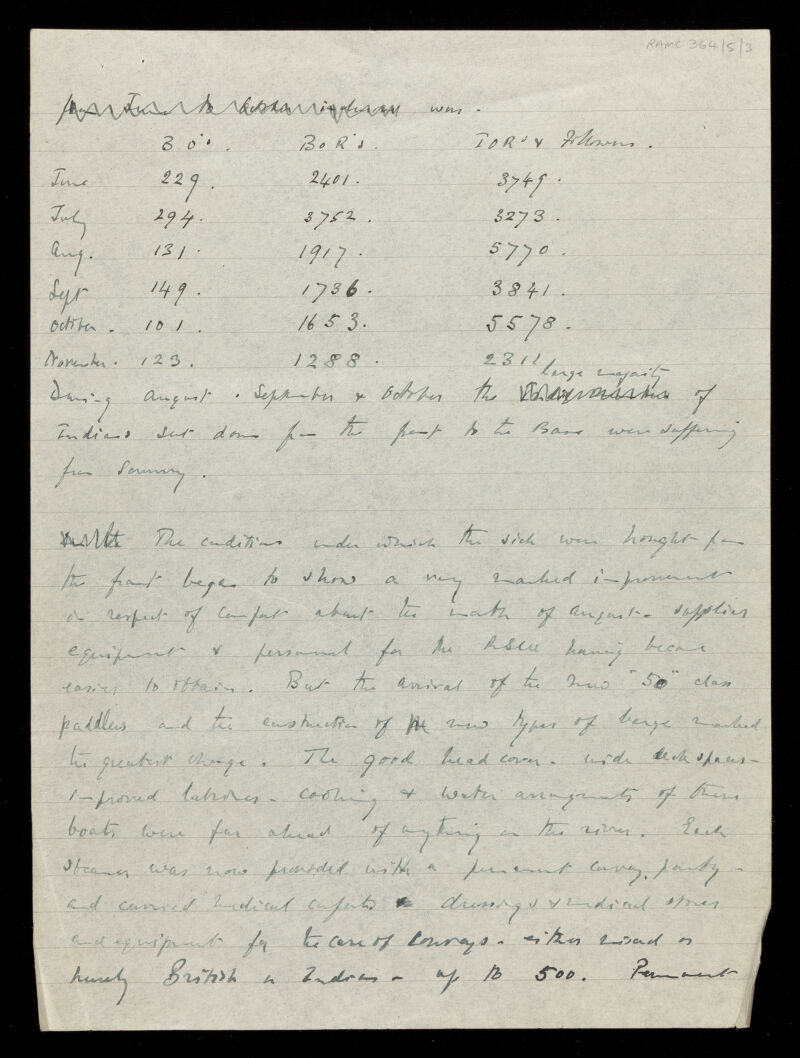 RAMC 364/5/3
from June to October inclusive was.
B O's. B O R's. I O R's & Followers.
June 229. 2401. 3749.
July 294. 3752. 3273.
Aug. 131. 1917. 5770.
Sept 149. 1736. 3841.
October. 101. 1653. 5578.
November. 123. 1288. 2312
large majority
During August. September & October the of
Indians sent down from the front to the Base were suffering
from Scurvy.
The conditions under which the sick were brought from
the front began to show a very marked improvement
in respect of comfort about the month of August - supplies
equipment & personnel for the having become
easier to obtain. But the arrival of the new "50" class
paddlers and the construction of new types of barge marked
the greatest change. The good head cover - wide deck spaces -
improved latrines - cooking & water arrangements of these
boats were far ahead of anything on the river. Each
steamer was now provided with a permanent convoy party -
and carried medical comforts dressings & medical stores
and equipment for the care of convoys - either mixed or
purely British or Indians - up to 500. Permanent